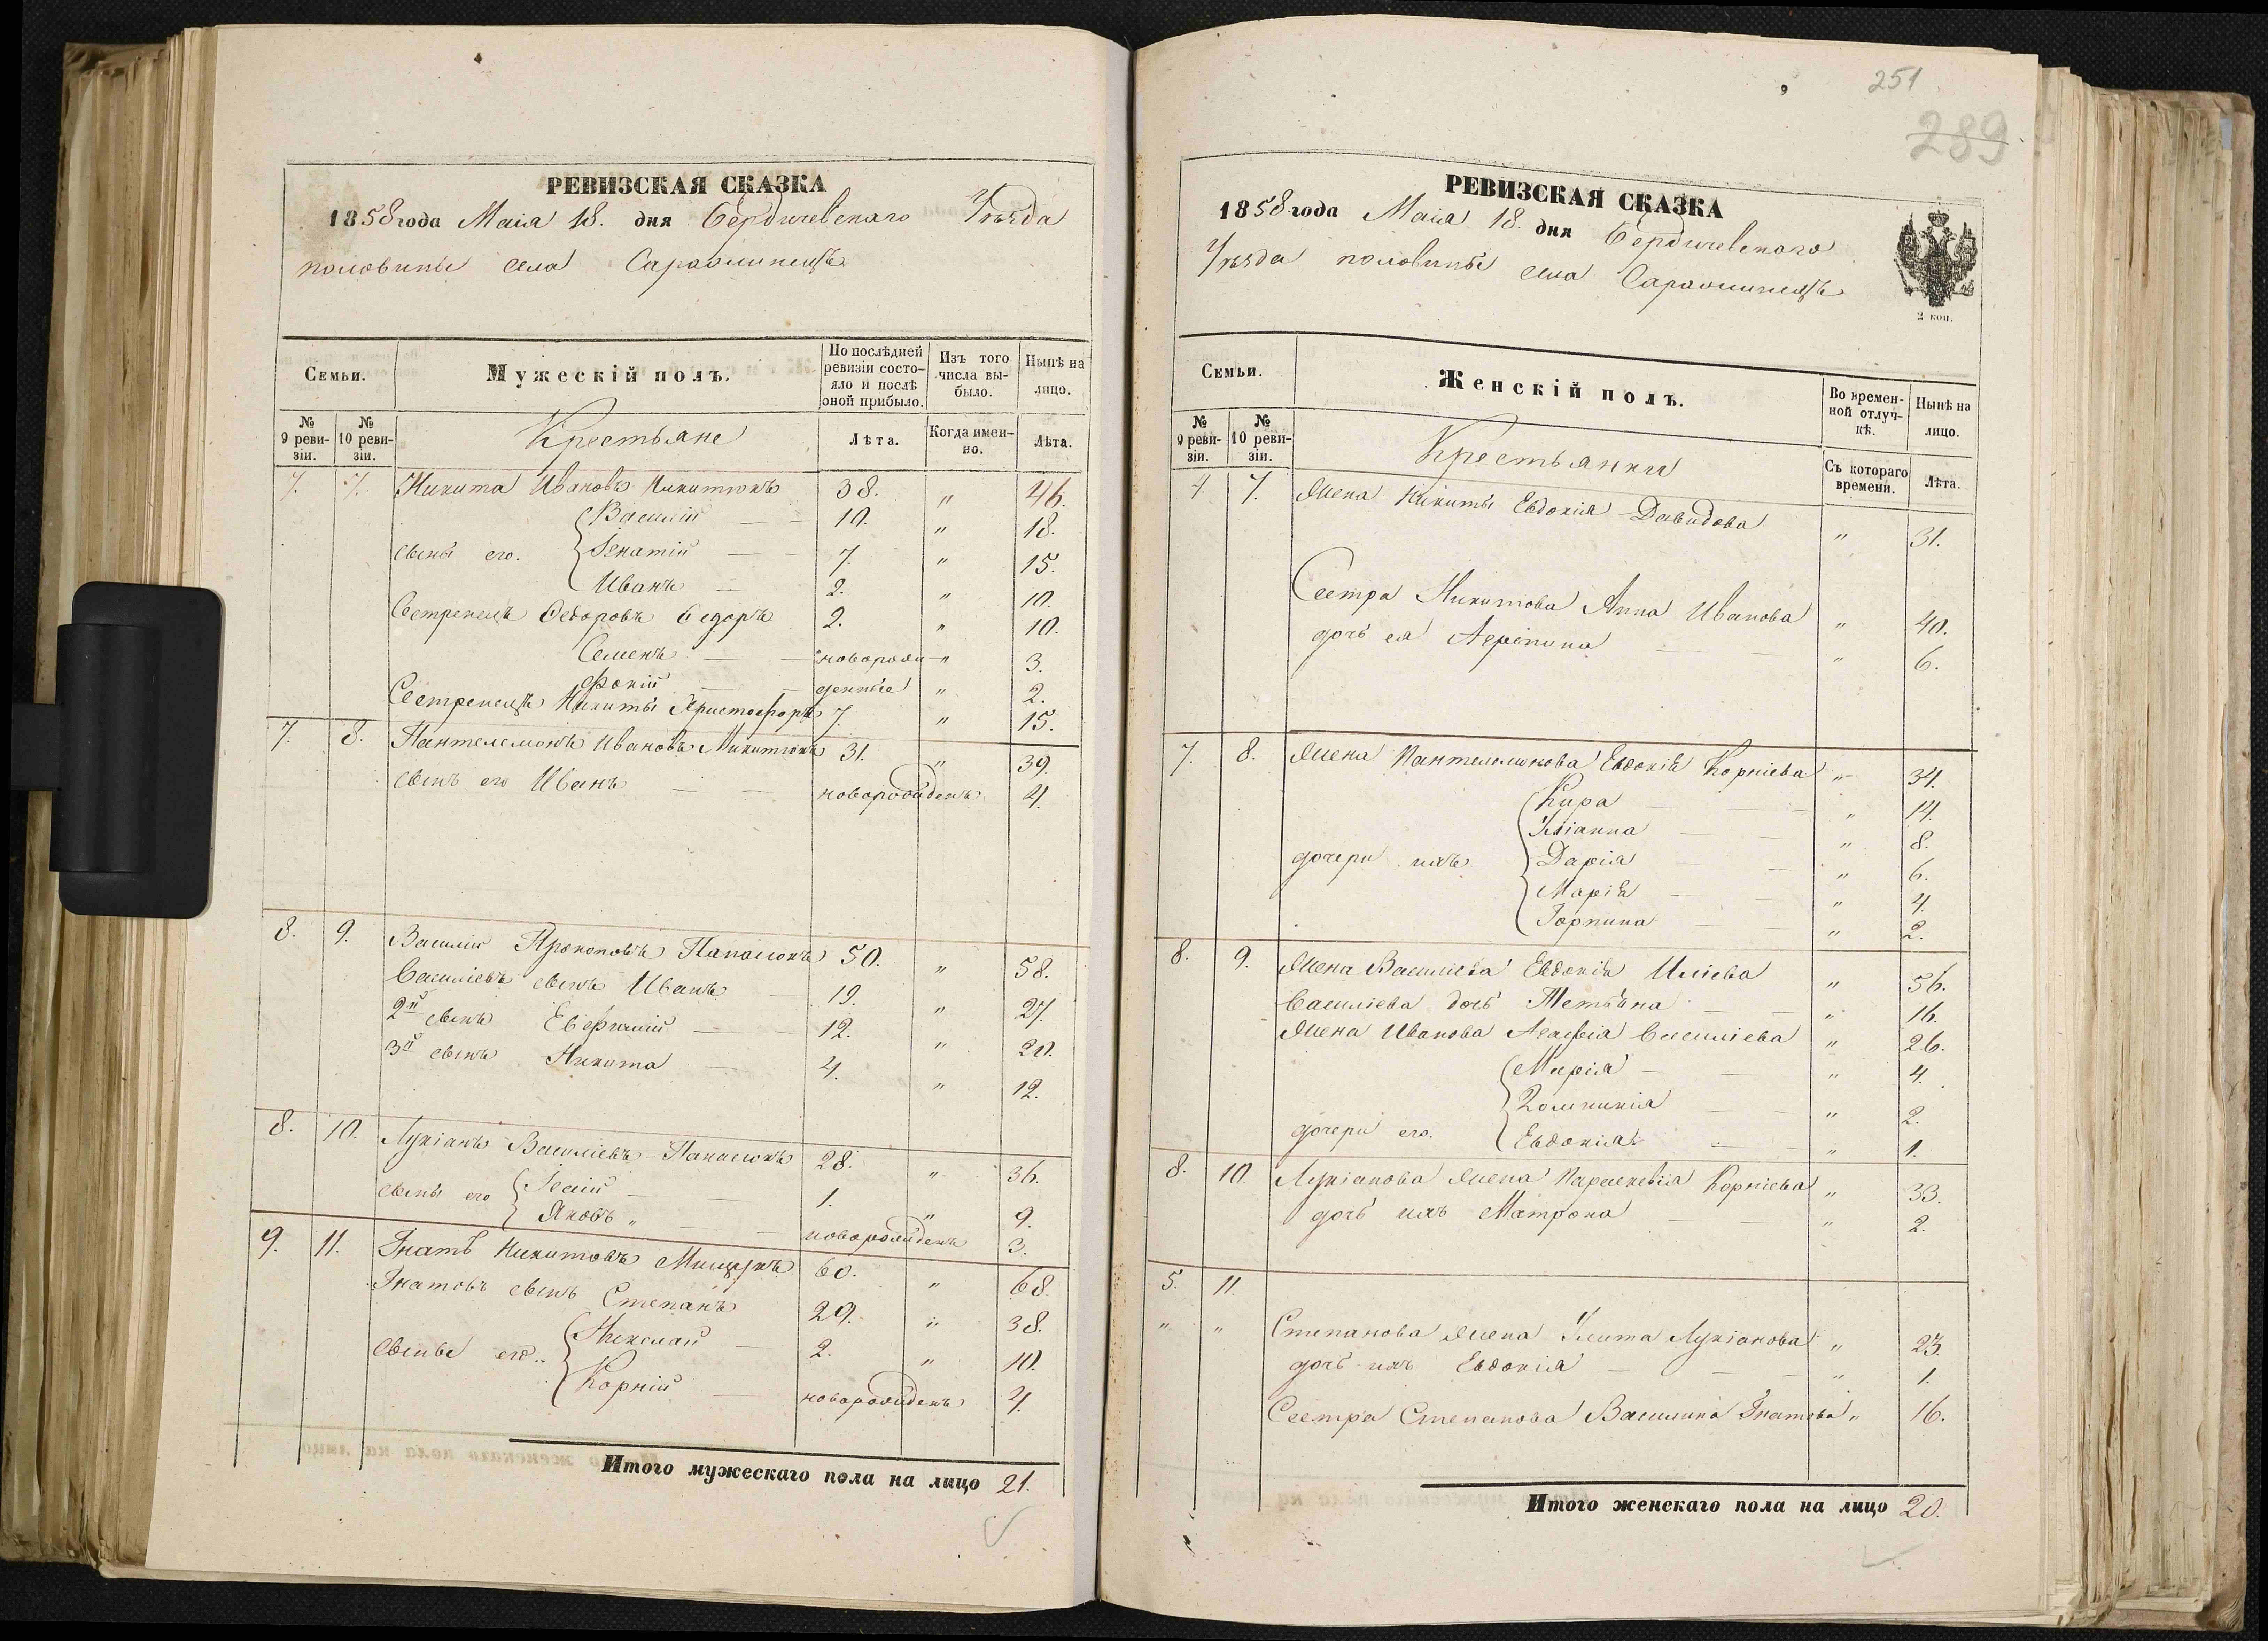 РЕВИЗСКАЯ СКАЗКА
1858 года Маія 18. дня Бердичевскаго Уѣзда
половины села
Семьи.
Мужескій полъ.
По послѣдней ревизіи состояло и послѣ оной прибыло.
Изъ того числа выбыло.
Нынѣ на лицо.
№ 9 ревизіи.
№ 10 ревизіи.
Крестьяне
Лѣта.
Когда именно.
Лѣта.
7. 7. Никита Ивановъ Никитюкъ 38. " 46.
Василій — 10. " 18.
сыны его. Игнатій — 7. " 15.
Иванъ — 2. " 10.
Сестренецъ Федоровъ 2. " 10.
Семенъ — новорож- " 3.
Фокій — денные " 2.
Сестренецъ Никиты Христофоръ 7. " 15.
7. 8. Пантелемонъ Ивановъ Микитюкъ 31. " 39.
сынъ его Иванъ — новорожденъ 4.
8. 9. Василій Прокоповъ Панасюкъ 50. " 58.
Василіевъ сынъ Иванъ — 19. " 27.
2й сынъ Евфимій — 12. " 20.
3й сынъ Никита — 4. " 12.
8. 10. Лукіанъ Василіевъ Панасюкъ 28. " 36.
сыны его 1. " 9.
Яковъ — новорожденъ 3.
9. 11. Гнатъ Никитовъ Мищукъ 60. " 68.
Гнатовъ сынъ Степанъ 29. " 38.
сыновья его. Николай — 2. " 10.
Корній — новорожденъ 4.
Итого мужескаго пола на лицо 21.
251
289
РЕВИЗСКАЯ СКАЗКА
1858 года Маія 18. дня Бердичевскаго
Уѣзда половины села
2 коп.
Семьи.
Женскій полъ.
Во временной отлучкѣ.
Нынѣ на лицо.
№ 9 ревизіи.
№ 10 ревизіи.
Крестьянки
Съ котораго времени.
Лѣта.
7. 7. Жена Никиты Евдокія Давидова " 31.
Сестра Никитова Анна Иванова " 40.
дочь ея Агрипина " 6.
7. 8. Жена Пантелемонова Евдокія Корніева " 34.
Кира — " 14.
Уліанна — " 8.
дочери ихъ. Дарія — " 6.
Марія — " 4.
Горпина — " 2.
8. 9. Жена Василіева Евдокія Иліева " 56.
Василіева дочь Тетьяна — " 16.
Жена Иванова Агафія Василіева " 26.
Марія — " 4.
Домникія — " 2.
дочери его. Евдокія — " 1.
8. 10. Лукіанова жена Параскевія Корніева " 33.
дочь ихъ Матрона — " 2.
5. 11.
" " Степанова жена Улита Лукіанова " 23.
дочь ихъ Евдокія — " 1.
Сестра Степанова Василина Гнатова " 16.
Итого женскаго пола на лицо 20.